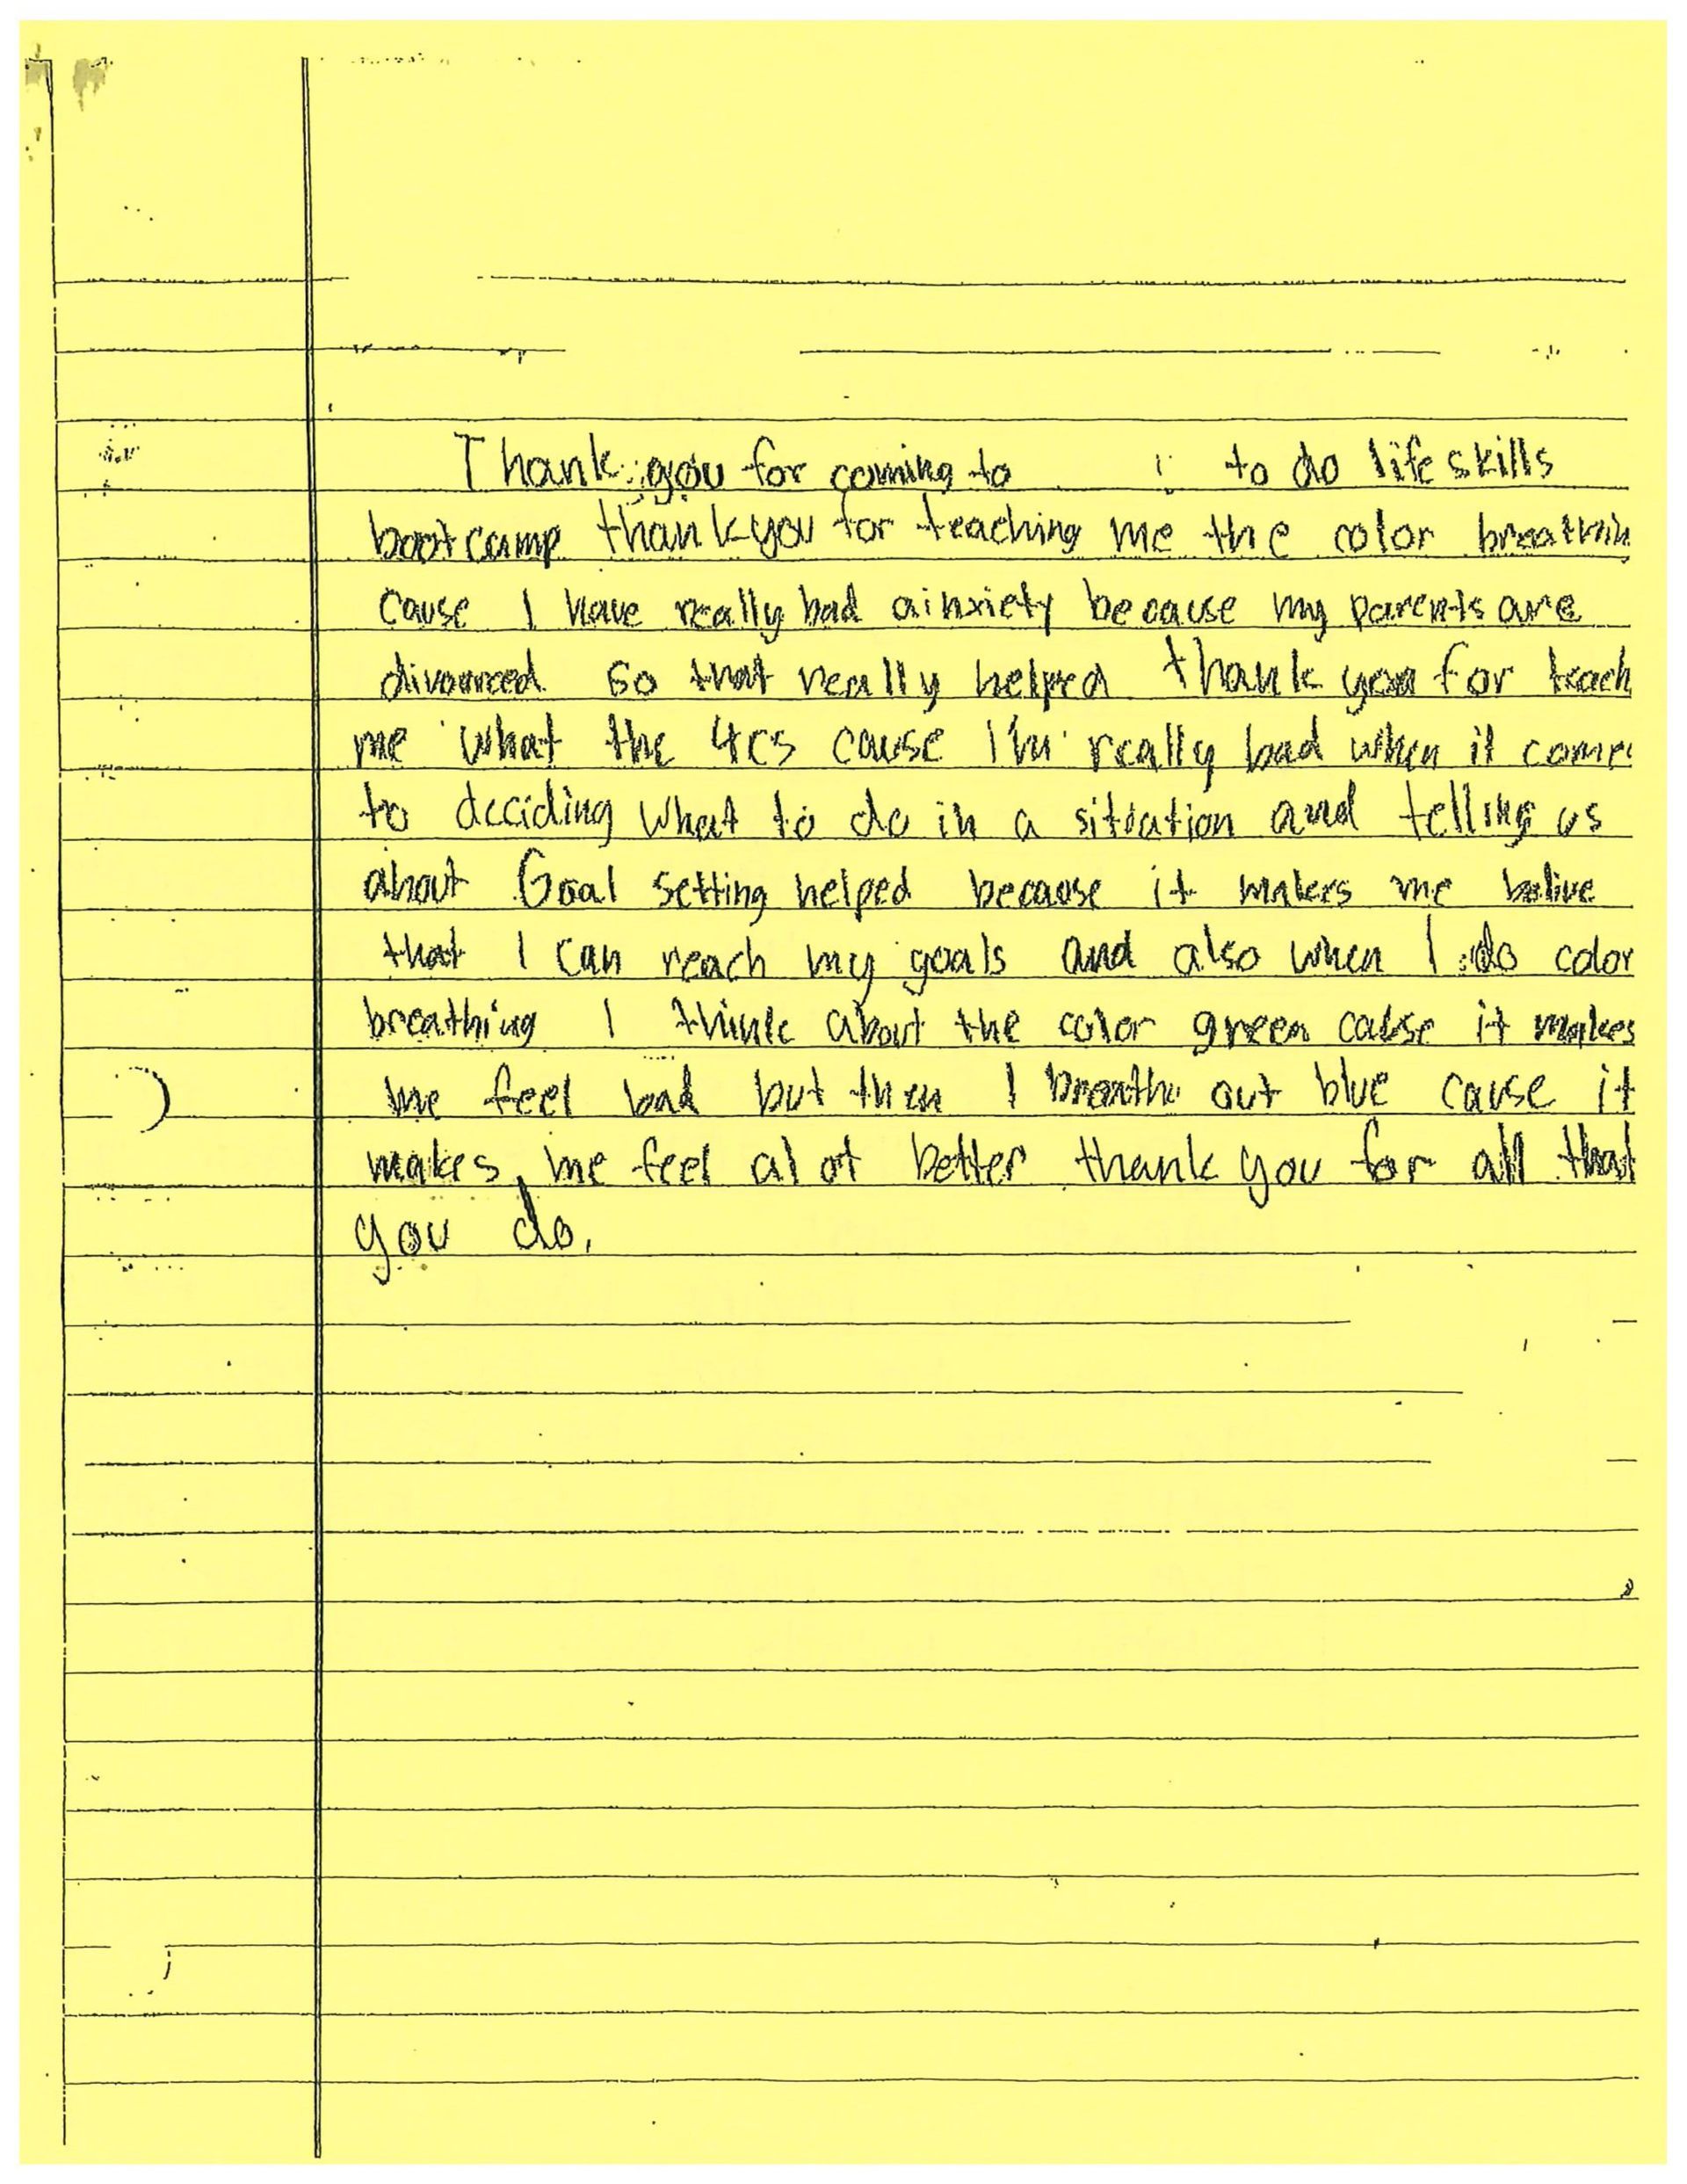 Thank you for coming to to do life skills
bootcamp thankyou for teaching me the color breathin
cause I have really bad ainxiety because my parents are
divourced so that really helped thank you for teach
me what the 4cs cause I'm really bad when it come
to deciding what to do in a sitiation and telling us
about Goal setting helped because it makes me belive
that I can reach my goals and also when I do color
breathing I think about the color green cause it makes
me feel bad but then I breathe out blue cause it
makes me feel alot better thank you for all that
you do.